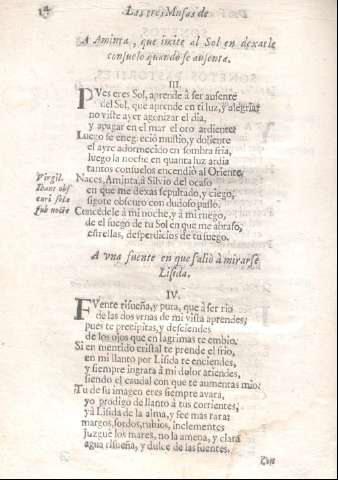 14 Las tres Musas de
A Aminta, que imite al Sol en dexarle
consuelo quando se ausenta.
III.
PVes eres Sol, aprende à ser ausente
del Sol, que aprende en ti luz, y alegria:
no viste ayer agonizar el dia,
y apagar en mar el oro ardiente?
Luego se enegreciò mustio, y doliente
el ayre adormecido en sombra fria,
luego la noche en quanta luz ardia
tantos consuelos encendiò al Oriente.
Naces, Aminta, à Silvio del ocaso
en que me dexas sepultado, y ciego,
sigote obscuro con dudoso passo.
Virgil.
Ibant obs
curi sola
sub nocte
Concedele à mi noche, y à mi ruego,
de el fuego de tu Sol en que me abraso,
estrellas, desperdicios de tu fuego.
A vna fuente en que saliò à mirarse
Lisida.
IV.
FVente risueña, y pura, que à ser rio
de las dos vrnas de mi vista aprendes,
pues te precipitas, y desciendes
de los ojos que en lagrimas te embio.
Si en mentido cristal te prende el frio,
en mi llanto por Lisida te enciendes,
y siempre ingrata à mi dolor atiendes,
siendo el caudal con que te aumentas mio:
Tu de su imagen eres siempre avara,
yo prodigo de llanto à tus corrientes,
y à Lisida de la alma, y fee mas rara:
margos, sordos, rubios, inclementes
Juzguè los mares, no la amena, y clara
agua risueña, y dulce de las fuentes.